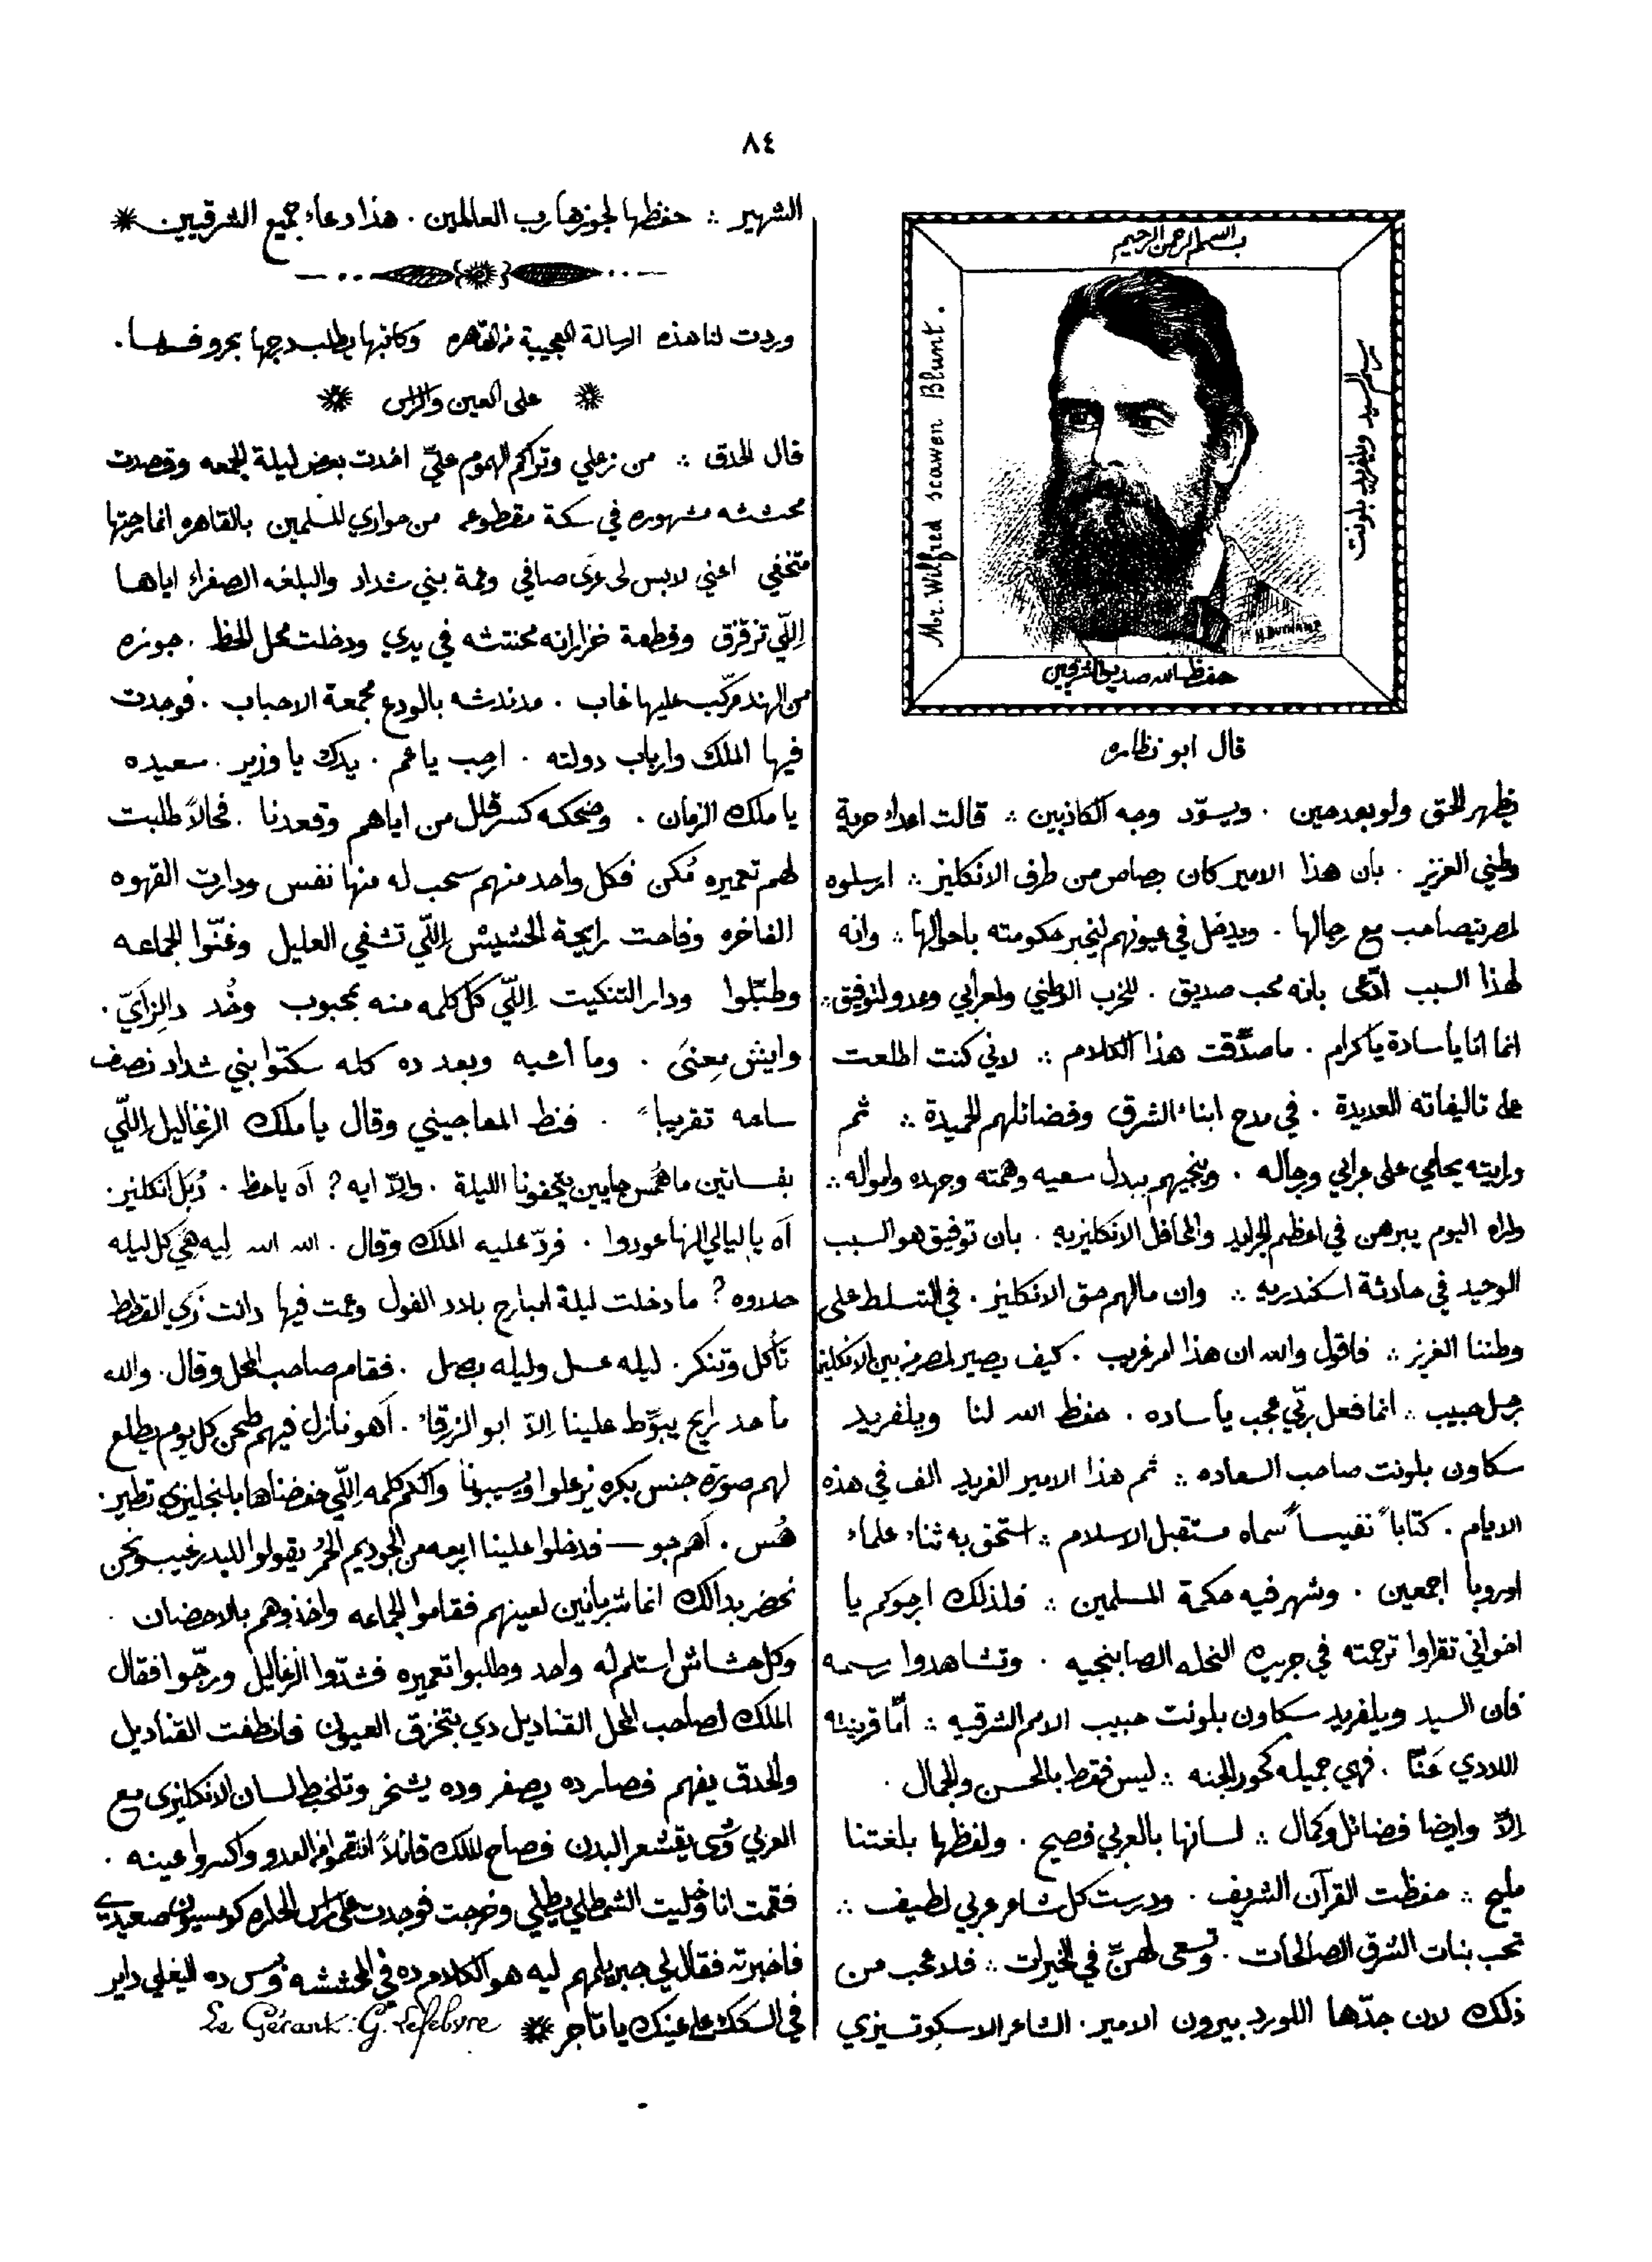 ٨٤
بسم الله الرحمن الرحيم
Mr. Wilfred scawen Blunt.
رسم السيد ويلفريد بلونت
حفظ الله صديق الشرقيين
قال ابو نظاره
يظهر الحق ولو بعد حين . ويسوّد وجه الكاذبين ؞ قالت اعداء حرية
وطني العزيز . بان هذا الامير كان بصاص من طرف الانكليز ؞ ارسلوه
لمصر يتصاحب مع رجالها . ويدخل في عيونهم ليخبر حكومته باحوالها ؞ وانه
لهذا السبب ادّعى بانه محب صديق . للحزب الوطني ولعرابي وعدو لتوفيق ؞
انما انا يا سادة يا كرام . ما صدّقت هذا الكلام ؞ لاني كنت اطلعت
على تاليفاته العديدة . في مدح ابناء الشرق وفضائلهم الحميدة ؞ ثم
ورايته يحامي على عرابي ورجاله . وينجيهم ببدل سعيه وهمته وجهده وامواله ؞
واراه اليوم يبرهن في اعظم الجرايد والمحافل الانكليزيه . بان توفيق هو السبب
الوحيد في حادثة اسكندريه ؞ وان مالهم حق الانكليز . في التسلط على
وطننا العزيز ؞ فاقول والله ان هذا امر غريب . كيف يصير لمصر من بين الانكليز
رجل حبيب ؞ انما فعل ربّي عجب يا ساده . حفظ الله لنا ويلفريد
سكاون بلونت صاحب السعاده ؞ ثم هذا الامير الفريد الف في هذه
الايام . كتاباً نفيساً سماه مستقبل الاسلام ؞ استحق به ثناء علماء
اوروبا اجمعين . وشهر فيه حكمة المسلمين ؞ فلذلك ارجوكم يا
اخواني تقراوا ترجمته في جريدة النحله الصابنجيه . وتشاهدوا رسمه
فان السيد ويلفريد سكاون بلونت حبيب الامم الشرقيه ؞ امّا قرينته
اللادي عَنّا . فهي جميله كحور الجنه ؞ ليس فقط بالحسن والجمال .
الاّ وايضا فضائل وكمال ؞ لسانها بالعربي فصيح . ولفظها بلغتنا
مليح ؞ حفظت القرآن الشريف . ودرست كل شاعر عربي لطيف ؞
تحب بنات الشرق الصالحات . وتسعى لهنّ في الخيرات ؞ فلا عجب من
ذلك لان جدّها اللورد بيرون الامير . الشاعر الاسكوتسيزي
الشهير ؞ حفظها لجوزها رب العالمين . هذا دعاء جميع الشرقيين
وردت لنا هذه الرسالة العجيبة من القاهره وكاتبها يطلب درجها بحروفها .
على العين والراس
قال الحدق ؞ من زعلي وتراكم الهموم عليّ اخدت بعض ليلة الجمعه وقصدت
محششه مشهوره في سكة مقطوعه من حواري المسلمين بالقاهره انما رحتها
متخفي اعني لابس لي عرى صافي وعمة بني شداد والبلغه الصفراء اياها
اللّي تزقزق وقطعة خزرانه محنتشه في يدي ودخلت محل الحظ . جوزه
من الهند مركّب عليها غاب . مدندشه بالودع مجمعة الاحباب . فوجدت
فيها الملك وارباب دولته . ارحب يا عم . يدك يا وزير . سعيده
يا ملك الزمان . وضحكه كسر قلل من اياهم وقعدنا . فحالاً طلبت
لهم تعميره مُكن فكل واحد منهم سحب له منها نفس ودارت القهوه
الفاخره وفاحت رايحة الحشيش اللّي تشفي العليل وغنّوا الجماعه
وطبّلوا ودار التنكيت اللّي كل كلمه منه بمحبوب وخُد دا لزايّ .
وايش مِعنَى . وما اشبه وبعد ده كله سكتوا بني شداد نصف
ساعه تقريباً . فنط المعاجيني وقال يا ملك الزغاليل اللّي
بفساتين ما هُمّس جايين يتحفونا الليلة . والاّ ايه ? اه يا حظ . دُبَل انكليز .
آه يا ليالي الهنا عودوا . فردّ عليه الملك وقال . الله الله ليه هيّ كل ليله
حدوه ? ما دخلت ليلة امبارح بلاد الفول وعمت فيها دانت زي القطط
تأكل وتنكر . ليله عسل وليله بصل . فقام صاحب المحل وقال . والله
ما حد رايح يبوّظ علينا الاّ ابو الزرقاء . اهو نازل فيهم طحن كل يوم يطلع
لهم صورة جنس بكره يزعلوا ويسيبونا والكم كلمه اللّي حفضناها بالنجليزي تطير .
هُس . اهم جو — فدخلوا علينا اربعه من الجوديم الحُمر يقولوا الليدر غيب ونحن
نحضر بدالك انما شربانين لعينهم فقاموا الجماعه واخذوهم بالاحضان .
وكل حشاش استلم له واحد وطلبوا تعميره فشدّوا الزغاليل ورجّوا فقال
الملك لصاحب المحل القناديل دي بتخزق العيون فانطفت القناديل
والحدق يفهم فصار ده يصفر وده يشخر وتلخبط لسان الانكليزي مع
العربي شي يقشعر البدن فصاح الملك قائلاً انتقموا من العدو واكسروا عينه .
فقمت انا وخليت الشمطلي يطلي وخرجت فوجدت على راس الحاره كومسيون صعيدي
فاخبرته فقال لي جبر يلمهم ليه هو الكلام ده في المحششه وبس ده اليغلي داير
في السكك على عينك يا تاجر
Le Gérant: G. Lefebvre